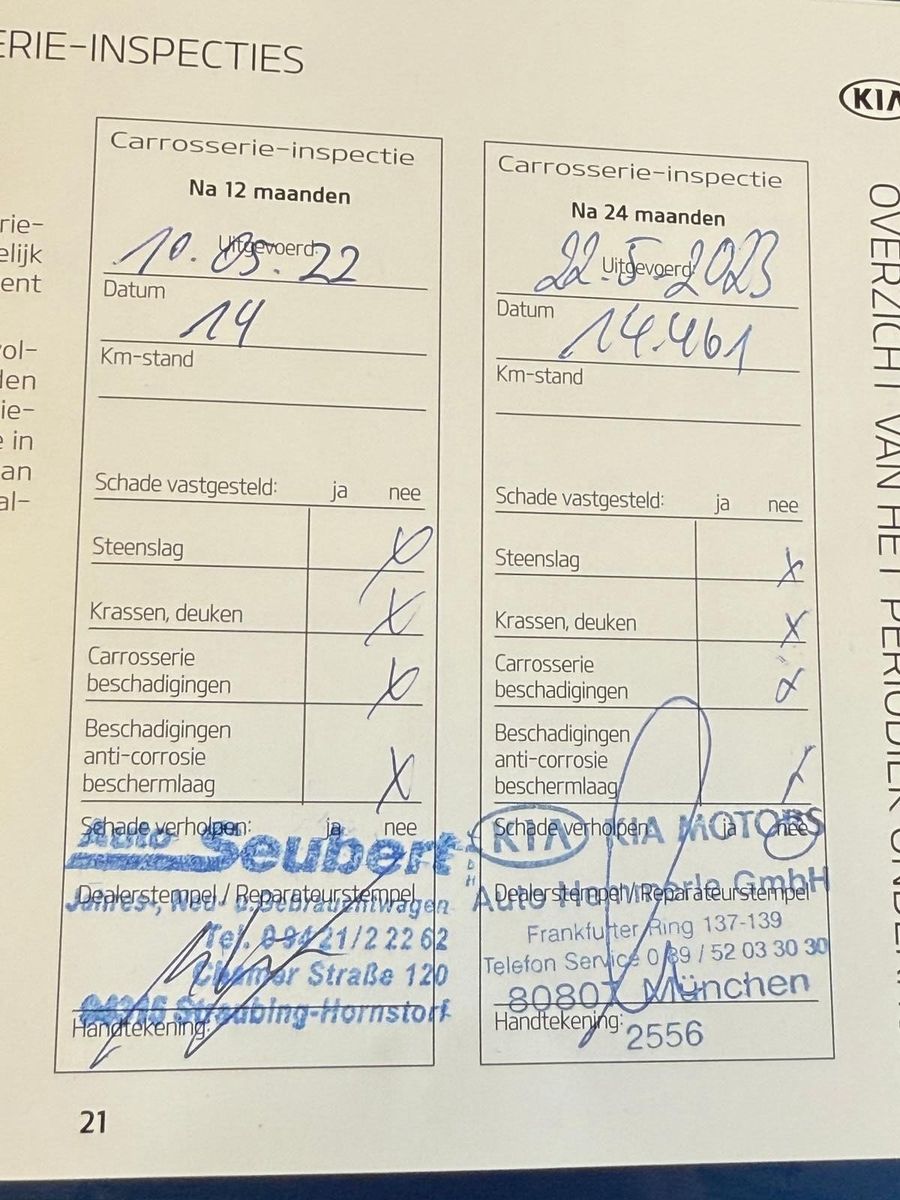 ERIE-INSPECTIES
KIA
rie-
elijk
ent
vol-
den
ie-
e in
an
al-
Carrosserie-inspectie
Na 12 maanden
Uitgevoerd:
10.05.22
Datum
14
Km-stand
Schade vastgesteld: ja nee
Steenslag X
Krassen, deuken X
Carrosserie
beschadigingen X
Beschadigingen
anti-corrosie
beschermlaag X
Schade verholpen: ja nee
Auto Seubert GmbH
Dealerstempel / Reparateurstempel
Jahres-, Neu- u. Gebrauchtwagen
Tel. 09421/2 22 62
Chamer Straße 120
94315 Straubing-Hornstorf
Handtekening:
Carrosserie-inspectie
Na 24 maanden
Uitgevoerd:
22.5.2023
Datum
14.461
Km-stand
Schade vastgesteld: ja nee
Steenslag X
Krassen, deuken X
Carrosserie
beschadigingen X
Beschadigingen
anti-corrosie
beschermlaag X
Schade verholpen: ja nee
KIA KIA MOTORS
Dealerstempel / Reparateurstempel
Auto Hammerle GmbH
Frankfurter Ring 137-139
Telefon Service 0 89 / 52 03 30 30
80807 München
Handtekening:
2556
OVERZICHT VAN HET PERIODIEK ONDERH
21